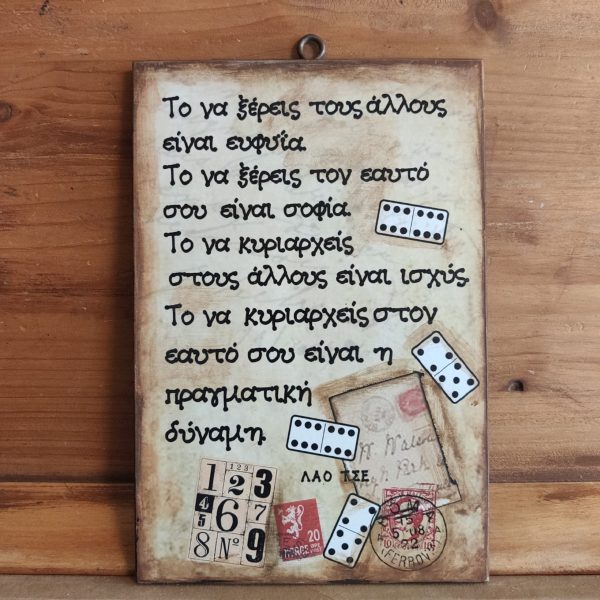 Το να ξέρεις τους άλλους
είναι ευφυΐα.
Το να ξέρεις τον εαυτό
σου είναι σοφία.
Το να κυριαρχείς
στους άλλους είναι ισχύς.
Το να κυριαρχείς στον
εαυτό σου είναι η
πραγματική
δύναμη.
ΛΑΟ ΤΣΕ
1 2 3
1 2 3
4 5 6 7
8 Nº 9
20
NORGE
FERROV